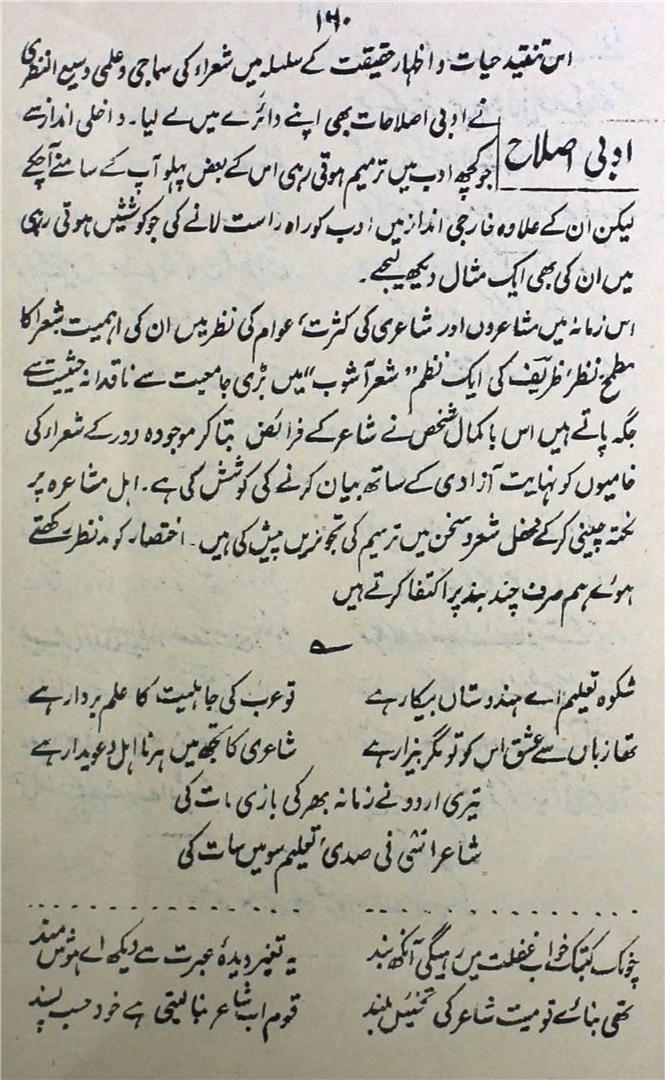 ۱۶۰
اس تنقید حیات و اظہار حقیقت کے سلسلہ میں شعراء کی سماجی و علمی وسیع النظری
نے ادبی اصلاحات بھی اپنے دائرے میں لے لیا۔ داخلی انداز سے
ادبی اصلاح
جو کچھ ادب میں ترمیم ہوتی رہی اس کے بعض پہلو آپ کے سامنے آچکے
لیکن ان کے علاوہ خارجی انداز میں ادب کو راہ راست لانے کی جو کوششیں ہوتی رہی
ہیں ان کی بھی ایک مثال دیکھ لیجے۔
اس زمانہ میں مشاعروں اور شاعری کی کثرت، عوام کی نظر میں ان کی اہمیت شعراء کا
مطمح نظر، ظریف کی ایک نظم "شعر آشوب" میں بڑی جامعیت سے ناقدانہ حیثیت سے
جگہ پاتے ہیں اس باکمال شخص نے شاعر کے فرائض بتا کر موجودہ دور کے شعراء کی
خامیوں کو نہایت آزادی کے ساتھ بیان کرنے کی کوشش کی ہے۔ اہل مشاعرہ پر
نکتہ چینی کر کے محفل شعر و سخن میں ترمیم کی تجویزیں پیش کی ہیں۔ اختصار کو مدنظر رکھتے
ہوئے ہم صرف چند بند پر اکتفا کرتے ہیں
شکوہ تعلیم اے ہندوستاں بیکار ہے    تو عرب کی جاہلیت کا علم بردار ہے
تھا زباں سے عشق اس کو تو مگر بیزار ہے    شاعری کا تجھ میں ہر نا اہل دعویدار ہے
تیری اردو نے زمانہ بھر کی بازی مات کی
شاعر اسّی فی صدی، تعلیم سو میں سات کی
چونک کبتک خواب غفلت میں رہیگی آنکھ بند    یہ تغیر دیدۂ عبرت سے دیکھ اے ہوشمند
تھی بنائے قومیت شاعر کی تخئیل بلند    قوم اب شاعر بنا لیتی ہے خود حسب پسند